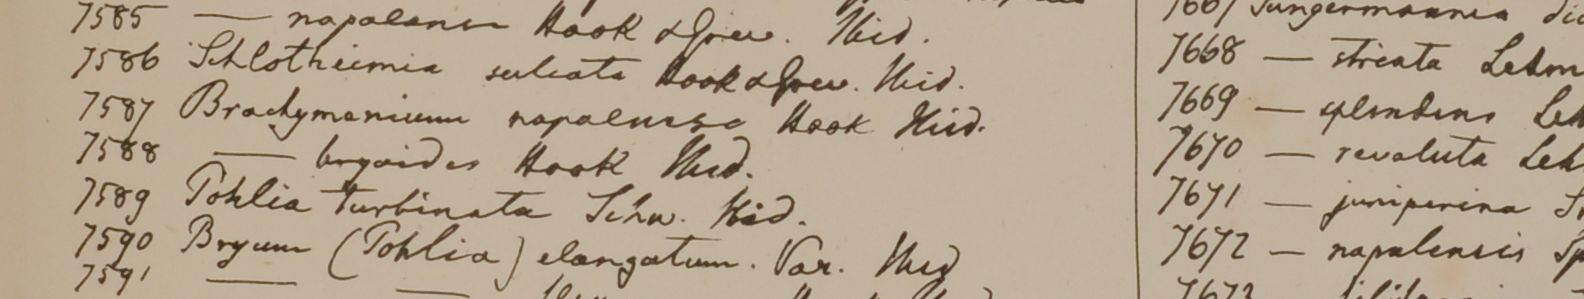 7585 — napalense Hook & Grev. Ibid.
7586 Schlotheimia sulcata Hook & Grev. Ibid.
7587 Brachymenium napalense Hook Ibid.
7588 — bryoides Hook Ibid.
7589 Pohlia turbinata Schw. Ibid.
7590 Bryum (Pohlia) elongatum. Var. Ibid
7591 — —
7667 Jungermannia
7668 — striata Lehm
7669 — splendens Leh
7670 — revoluta Leh
7671 — juniperina S
7672 — napalensis Sp
7673